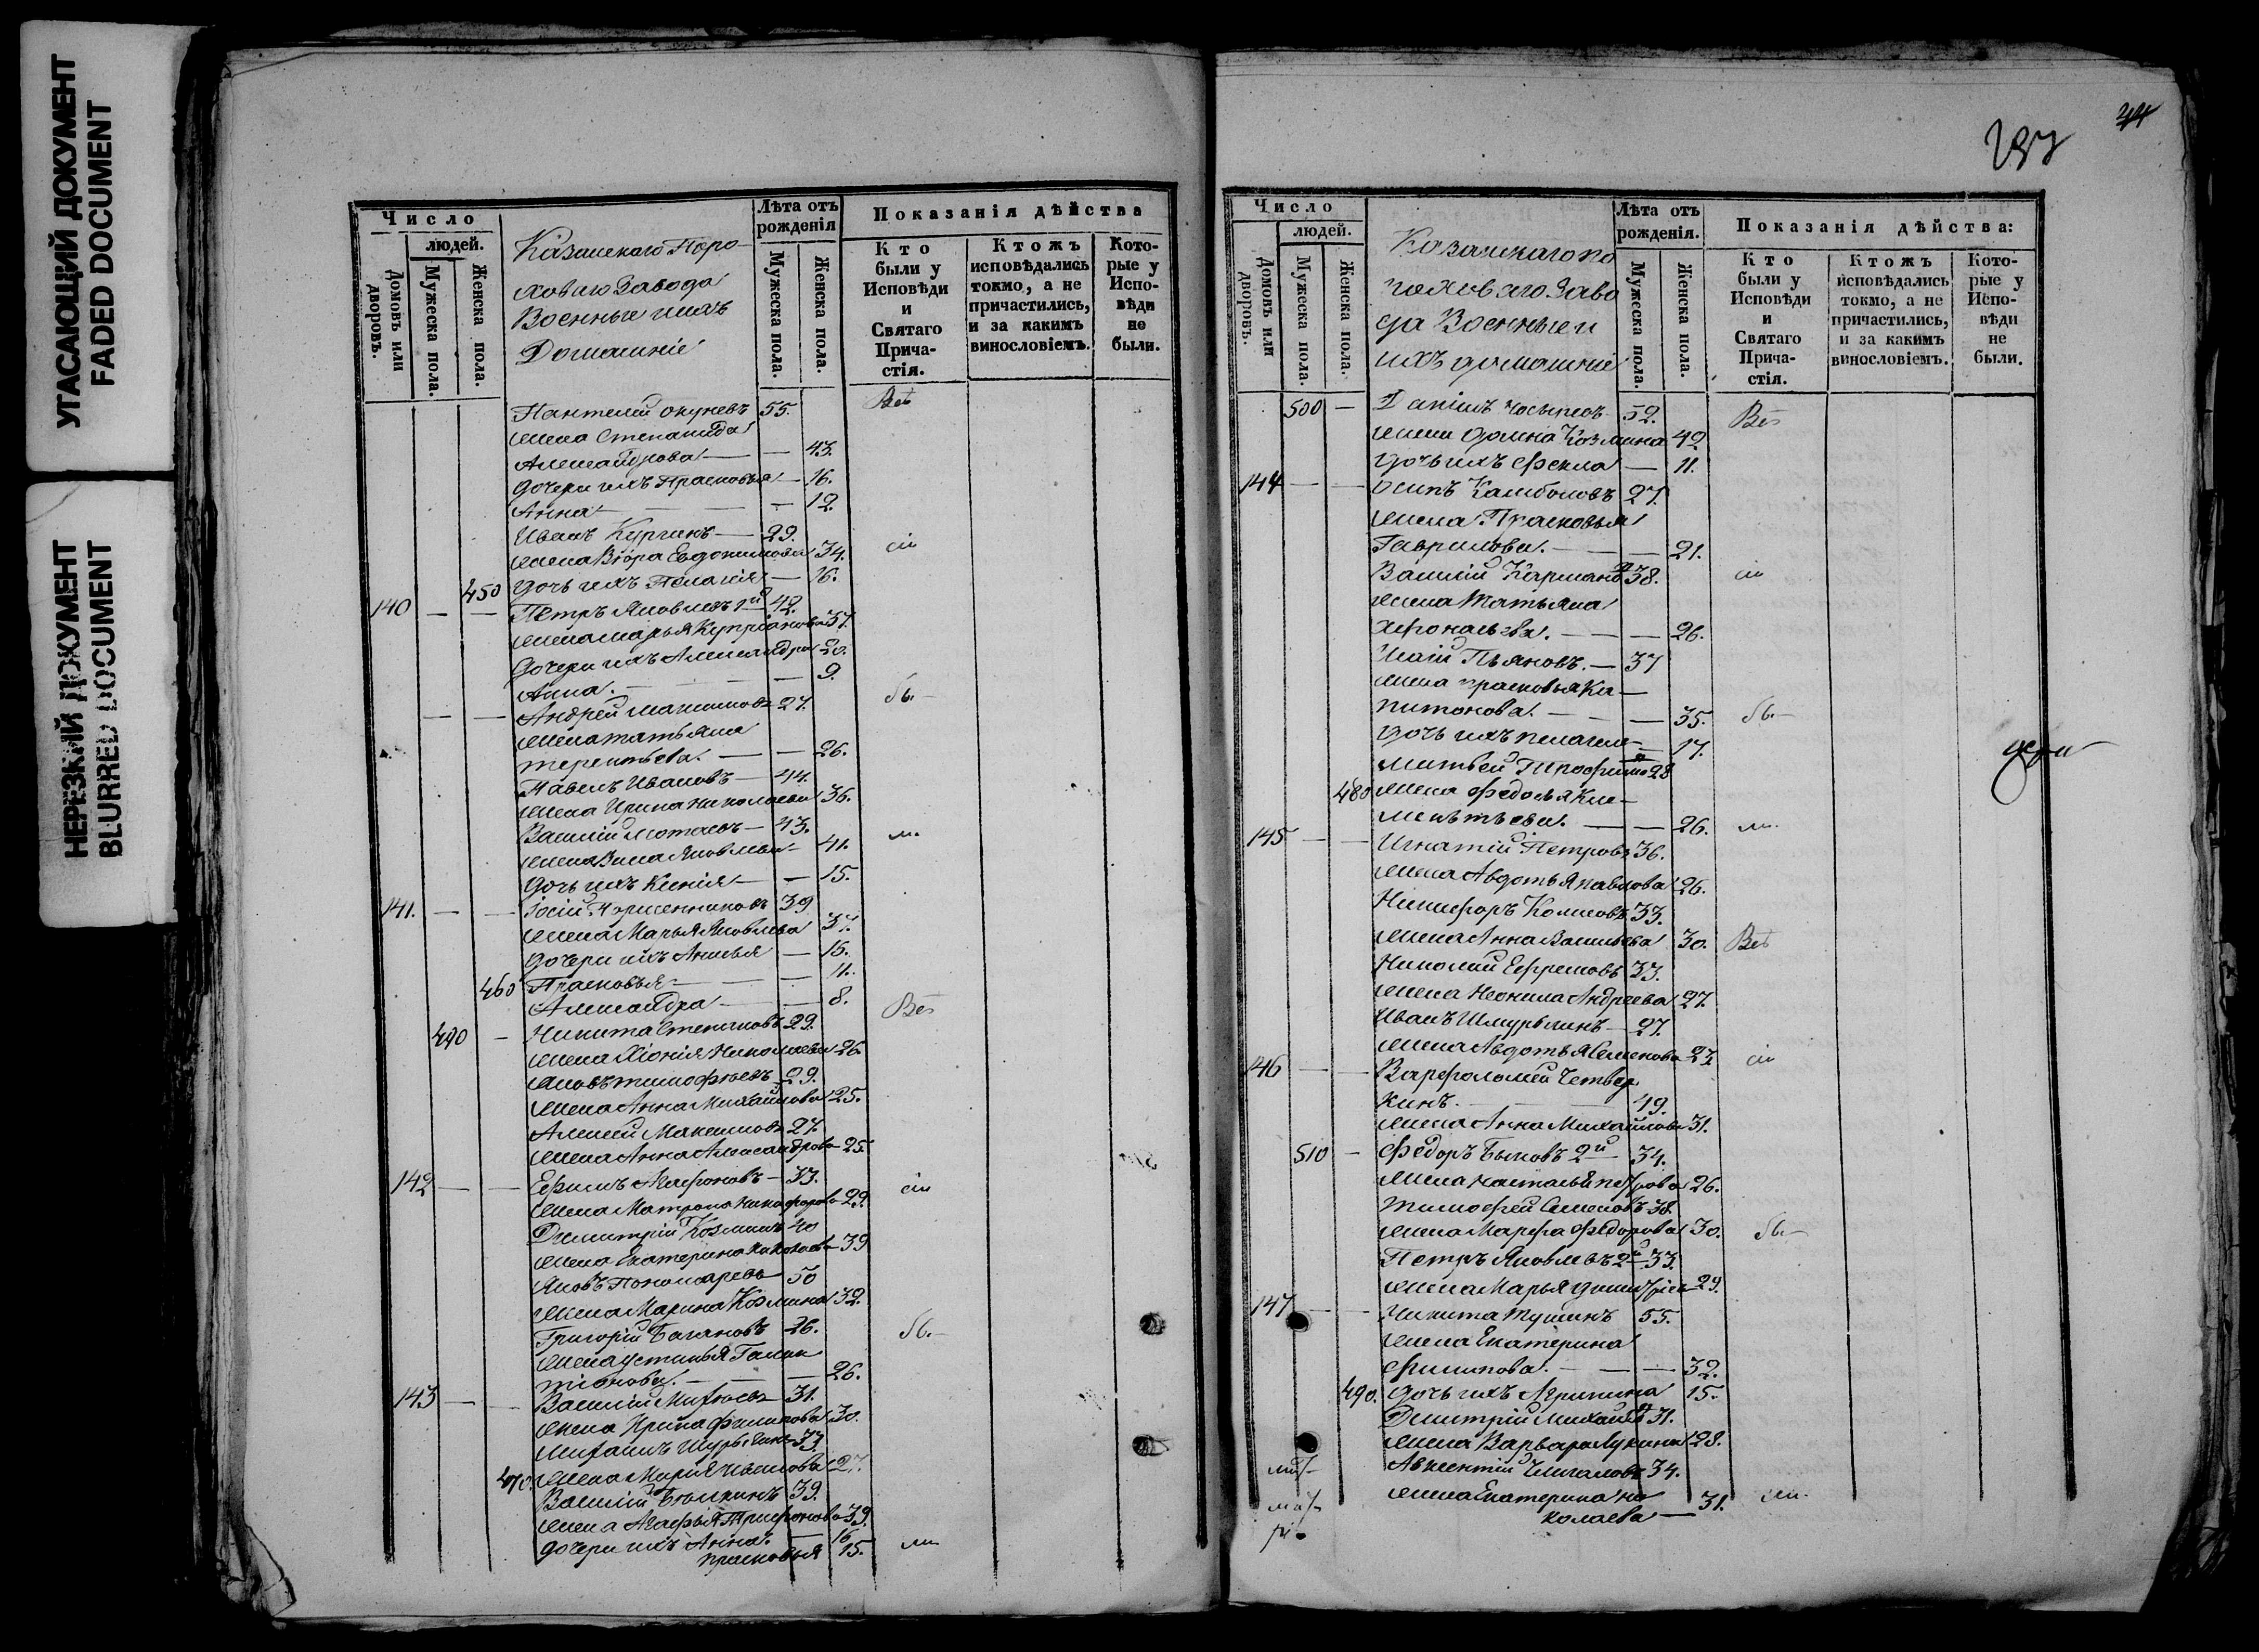 УГАСАЮЩИЙ ДОКУМЕНТ
FADED DOCUMENT
НЕРЕЗКИЙ ДОКУМЕНТ
BLURRED DOCUMENT
Число
людей.
Домовъ или дворовъ.
Мужеска пола.
Женска пола.
Казанскаго Поро-
ховаго Завода
Военные и ихъ
Домашніе
Лѣта отъ рожденія
Мужеска пола.
Женска пола.
Показанія дѣйства
Кто были у Исповѣди и Святаго Прича-стія.
Ктожъ исповѣдались токмо, а не причастились, и за какимъ винословіемъ.
Кото-рые у Испо-вѣди не были.
Пантелей Окуневъ 55. Всѣ
жена Степанида
Александрова — — 43.
дочери ихъ Прасковья — 16.
Анна — — 12.
Иванъ Кургинъ — 29.
жена Вѣра Евдокимова 34. сіи
450 дочь ихъ Пелагія — 16.
140 — — Петръ Яковлевъ 1й 42.
жена Марья Купріанова 37.
дочери ихъ Александра 20.
Анна. — — 9.
— — Андрей Максимовъ 27. бы-
жена Татьяна
Терентьева. — — 26.
Павелъ Ивановъ — 44.
жена Ирина Николаева 36.
Василій — 43. ли
жена Яковлева 41.
дочь ихъ Ксенія — — 15.
141. — — 39
жена Марья Яковлева 37.
дочери ихъ Анисья — 15.
460 Прасковья — — 11.
Александра — — 8. Всѣ
490 — Никита Степановъ 29.
жена Хіонія Николаева 26.
Яковъ Тимофеевъ 29.
жена Анна Михайлова 25.
Алексей Максимовъ 27.
жена Анна Александрова 25.
142 — — Ефимъ Агафоновъ — 33. сіи
жена Матрона Никифорова 29.
Димитрій Козминъ 40
жена Екатерина Николаева 39
Яковъ Пономаревъ 50
жена Марина Козмина 32.
Григорій Багановъ 26. бы-
жена Устинья Галак
тіонова. — — 26.
143 — — Василій 31.
жена Ирина Филипова 30.
33.
470. жена Марія 27.
Василій 39.
жена Агафья Трифонова 39.
дочери ихъ Анна. — 16 ли
Прасковья 15.
44
Число
людей.
Домовъ или дворовъ.
Мужеска пола.
Женска пола.
Казанскаго по
роховаго Заво
да Военные и
ихъ домашніе
Лѣта отъ рожденія.
Мужеска пола.
Женска пола.
Показанія дѣйства:
Кто были у Исповѣди и Святаго Прича-стія.
Ктожъ исповѣдались токмо, а не причастились, и за какимъ винословіемъ.
Кото-рые у Испо-вѣди не были.
500 — 52. Всѣ
жена Домна Козмина 42
дочь ихъ Фекла — 11.
144 — — Осипъ Камболовъ 27.
жена Прасковья
Гаврилова. — — 21.
Василій 38. сіи
жена Татьяна
Афонасьева. — — 26.
Пьяновъ. — 37
жена Прасковья Ка-
питонова. — — 35. бы-
дочь ихъ Пелагия — 17.
28
480 жена Федосья Кле-
ментьева. — — 26. ли
145 — — Игнатій Петровъ 36.
жена Авдотья Павлова 26.
Никифоръ 33.
жена Анна Васильева 30. Всѣ
Николай Ефремовъ 33.
жена Неонила Андреева 27.
Иванъ Шмурыгинъ — 27.
жена Авдотья Семенова 27. сіи
146 — — Варфоломей Четвер
кинъ. — 49.
жена Анна Михайлова 31.
510 — Федоръ Быковъ 2й 34.
жена Настасья Петрова 26.
Тимофей Семеновъ 38.
жена Марфа Федорова 30. бы-
Петръ Яковлевъ 2й 33.
жена Марья Димитріева 29.
147 — — Никита Тушинъ 55.
жена Екатерина
Филипова. — — 32.
490. дочь ихъ Агрипина 15.
Дмитрій 31.
жена Варвара Лукина 28.
Авксентій 34.
жена Екатерина Ни
колаева — 31. ли